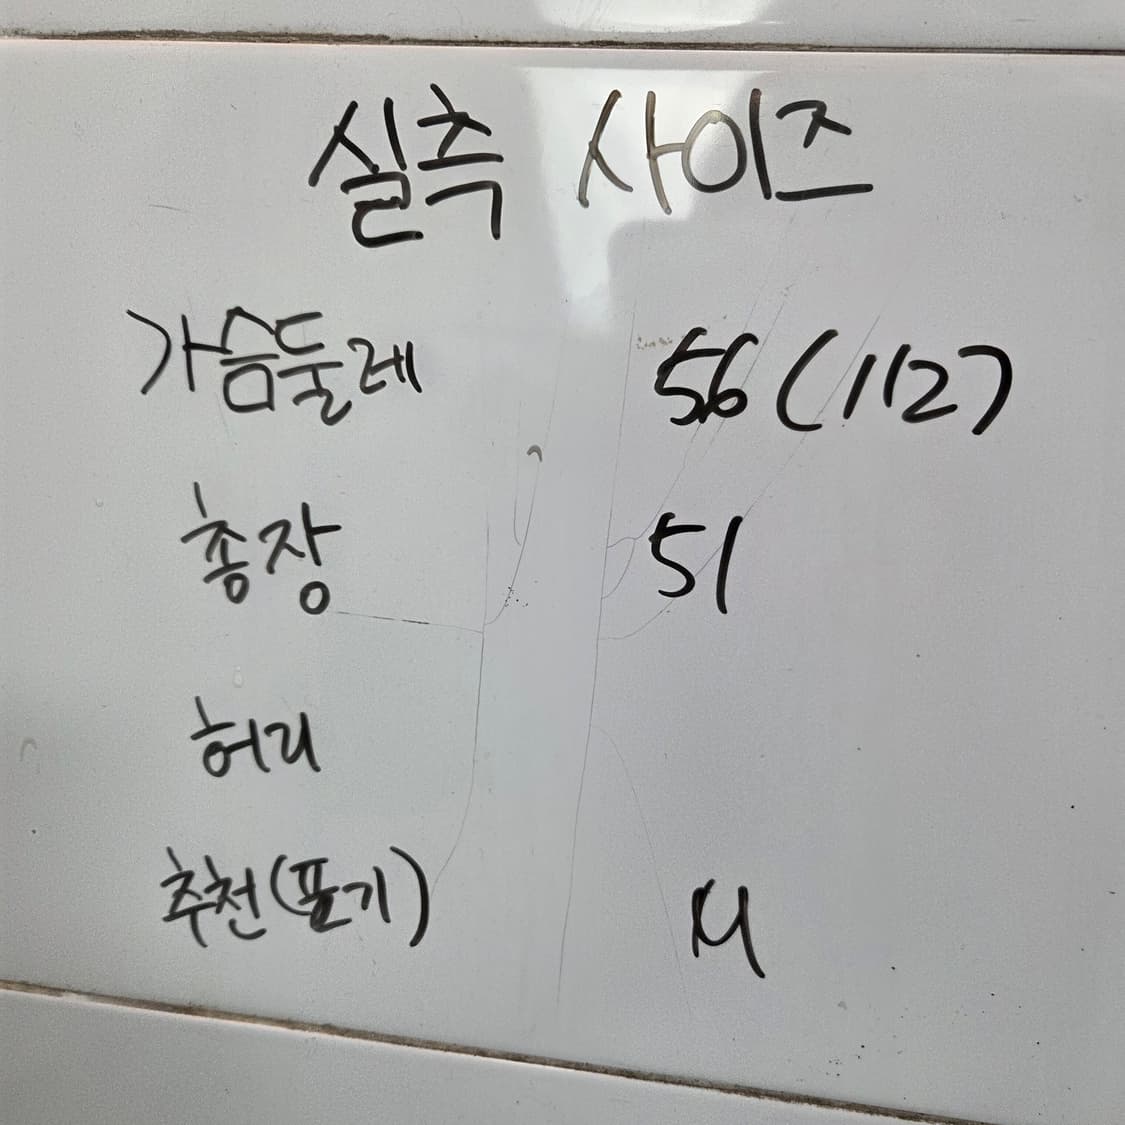 실측 사이즈
가슴둘레 56 (112)
총장 51
허리
추천(표기) M